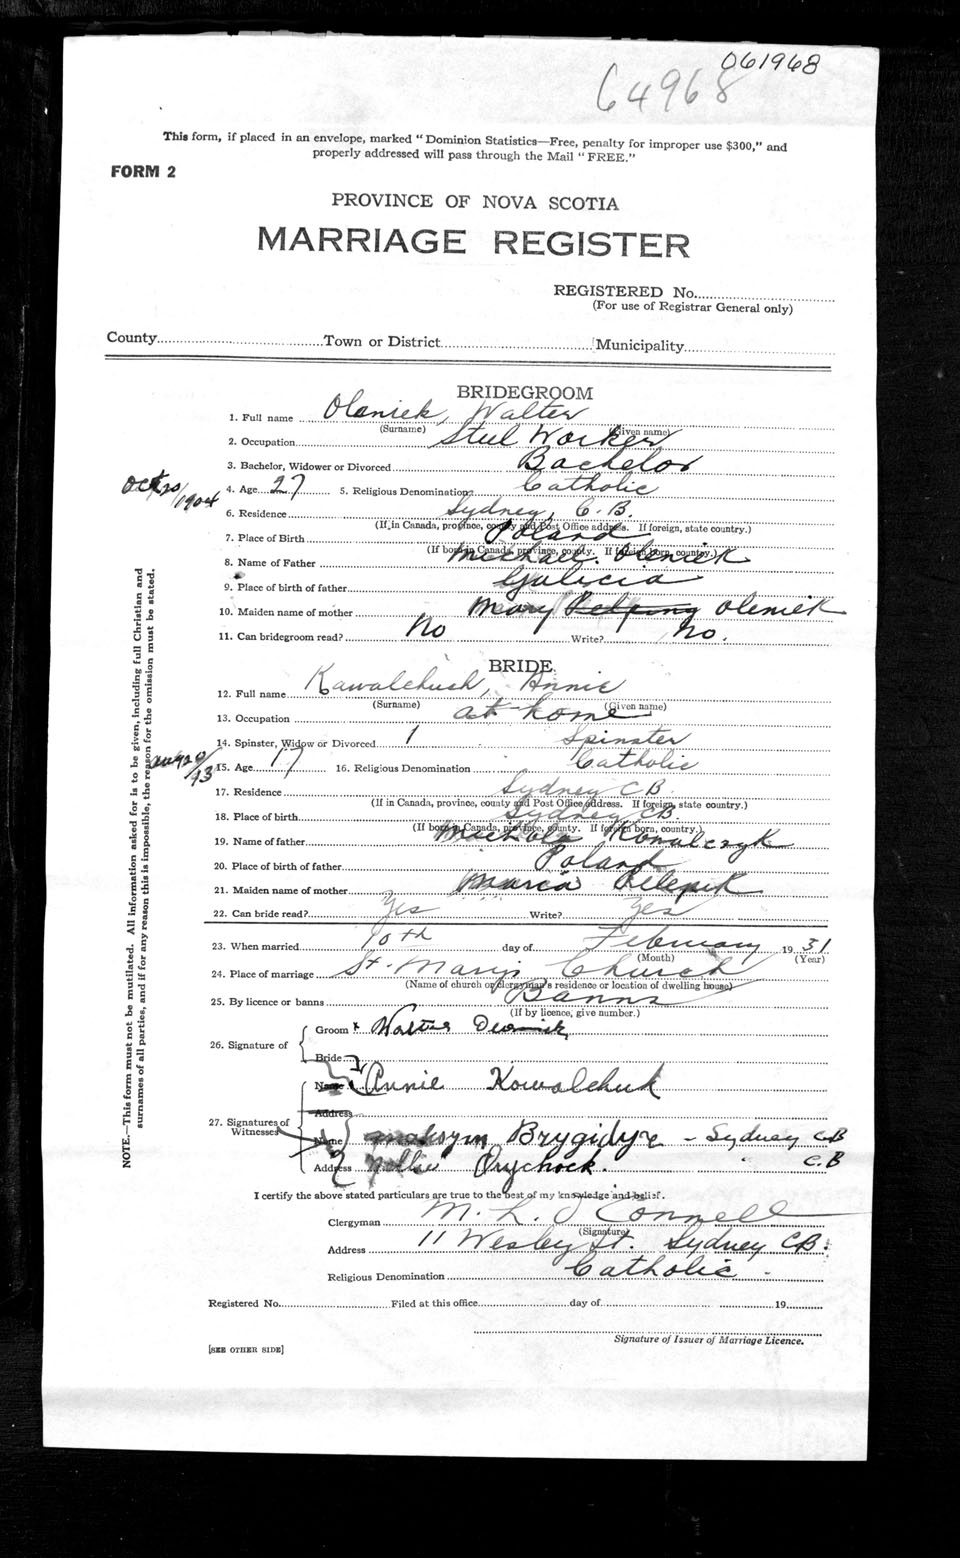 061968
64968
This form, if placed in an envelope, marked “Dominion Statistics—Free, penalty for improper use $300,” and
properly addressed will pass through the Mail “FREE.”
FORM 2
PROVINCE OF NOVA SCOTIA
MARRIAGE REGISTER
REGISTERED No.
(For use of Registrar General only)
County Town or District Municipality
BRIDEGROOM
1. Full name Oleniek, Walter
(Surname) (Given name)
2. Occupation Steel Worker
3. Bachelor, Widower or Divorced Bachelor
Oct 20/1904
4. Age 27 5. Religious Denomination Catholic
6. Residence Sydney, C.B.
(If in Canada, province, county and Post Office address. If foreign, state country.)
7. Place of Birth Poland
(If born in Canada, province, county. If foreign born, country.)
8. Name of Father Michael Oleniek
9. Place of birth of father Galicia
10. Maiden name of mother Mary Oleniek
11. Can bridegroom read? No Write? No.
BRIDE
12. Full name Kawalchuck, Annie
(Surname) (Given name)
13. Occupation at home
14. Spinster, Widow or Divorced 1 Spinster
15. Age 17 16. Religious Denomination Catholic
17. Residence Sydney C B.
(If in Canada, province, county and Post Office address. If foreign, state country.)
18. Place of birth Sydney CB.
(If born in Canada, province, county. If foreign born, country.)
19. Name of father Kowalczyk
20. Place of birth of father Poland
21. Maiden name of mother Maria
22. Can bride read? Yes Write? Yes
23. When married 10th day of February 1931
(Month) (Year)
24. Place of marriage St. Mary's Church
(Name of church or clergyman's residence or location of dwelling house)
25. By licence or banns Banns
(If by licence, give number.)
26. Signature of Groom x Walter
Bride
Name Annie Kowalchuk
Address
27. Signatures of Witnesses
Name Maksym Brygidyr - Sydney CB
Address Nellie Prychock. " C.B
I certify the above stated particulars are true to the best of my knowledge and belief.
Clergyman M. L. O'Connell
(Signature)
Address 11 Wesley St. Sydney CB.
Religious Denomination Catholic
Registered No. Filed at this office day of 19
Signature of Issuer of Marriage Licence.
[SEE OTHER SIDE]
NOTE.—This form must not be mutilated. All information asked for is to be given, including full Christian and
surnames of all parties, and if for any reason this is impossible, the reason for the omission must be stated.